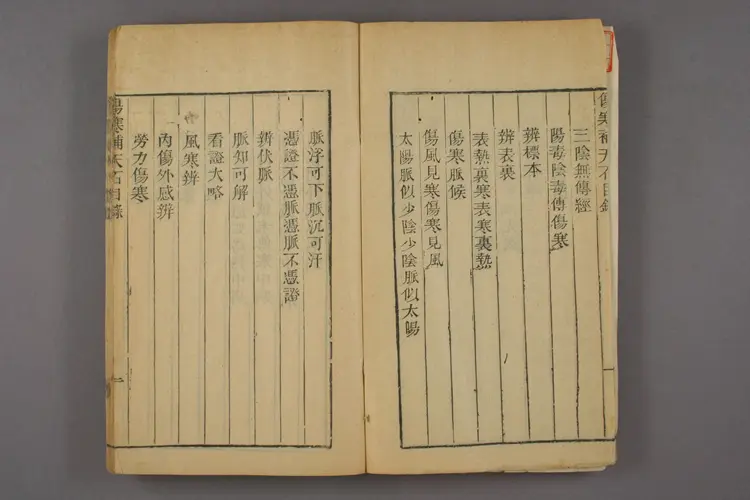 傷寒補天石目錄
三陰無傳經
陽毒陰毒傳傷寒
辨標本
辨表裏
表熱裏寒表寒裏熱
傷寒脈候
傷風見寒傷寒見風
太陽脈似少陰少陰脈似太陽
脈浮可下脈沉可汗
憑證不憑脈憑脈不憑證
辨伏脈
脈知可解
看證大略
風寒辨
內傷外感辨
勞力傷寒
傷寒補天石目錄
一